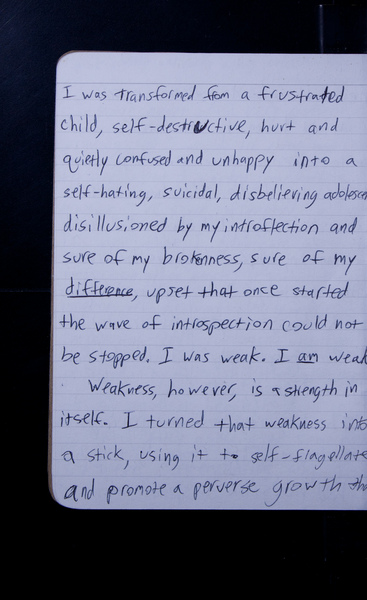 I was transformed from a frustrated
child, self-destructive, hurt and
quietly confused and unhappy into a
self-hating, suicidal, disbelieving adolescen
disillusioned by my introflection and
sure of my brokenness, sure of my
difference, upset that once started
the wave of introspection could not
be stopped. I was weak. I am weak
Weakness, however, is a strength in
itself. I turned that weakness into
a stick, using it to self-flagellate
and promote a perverse growth tha